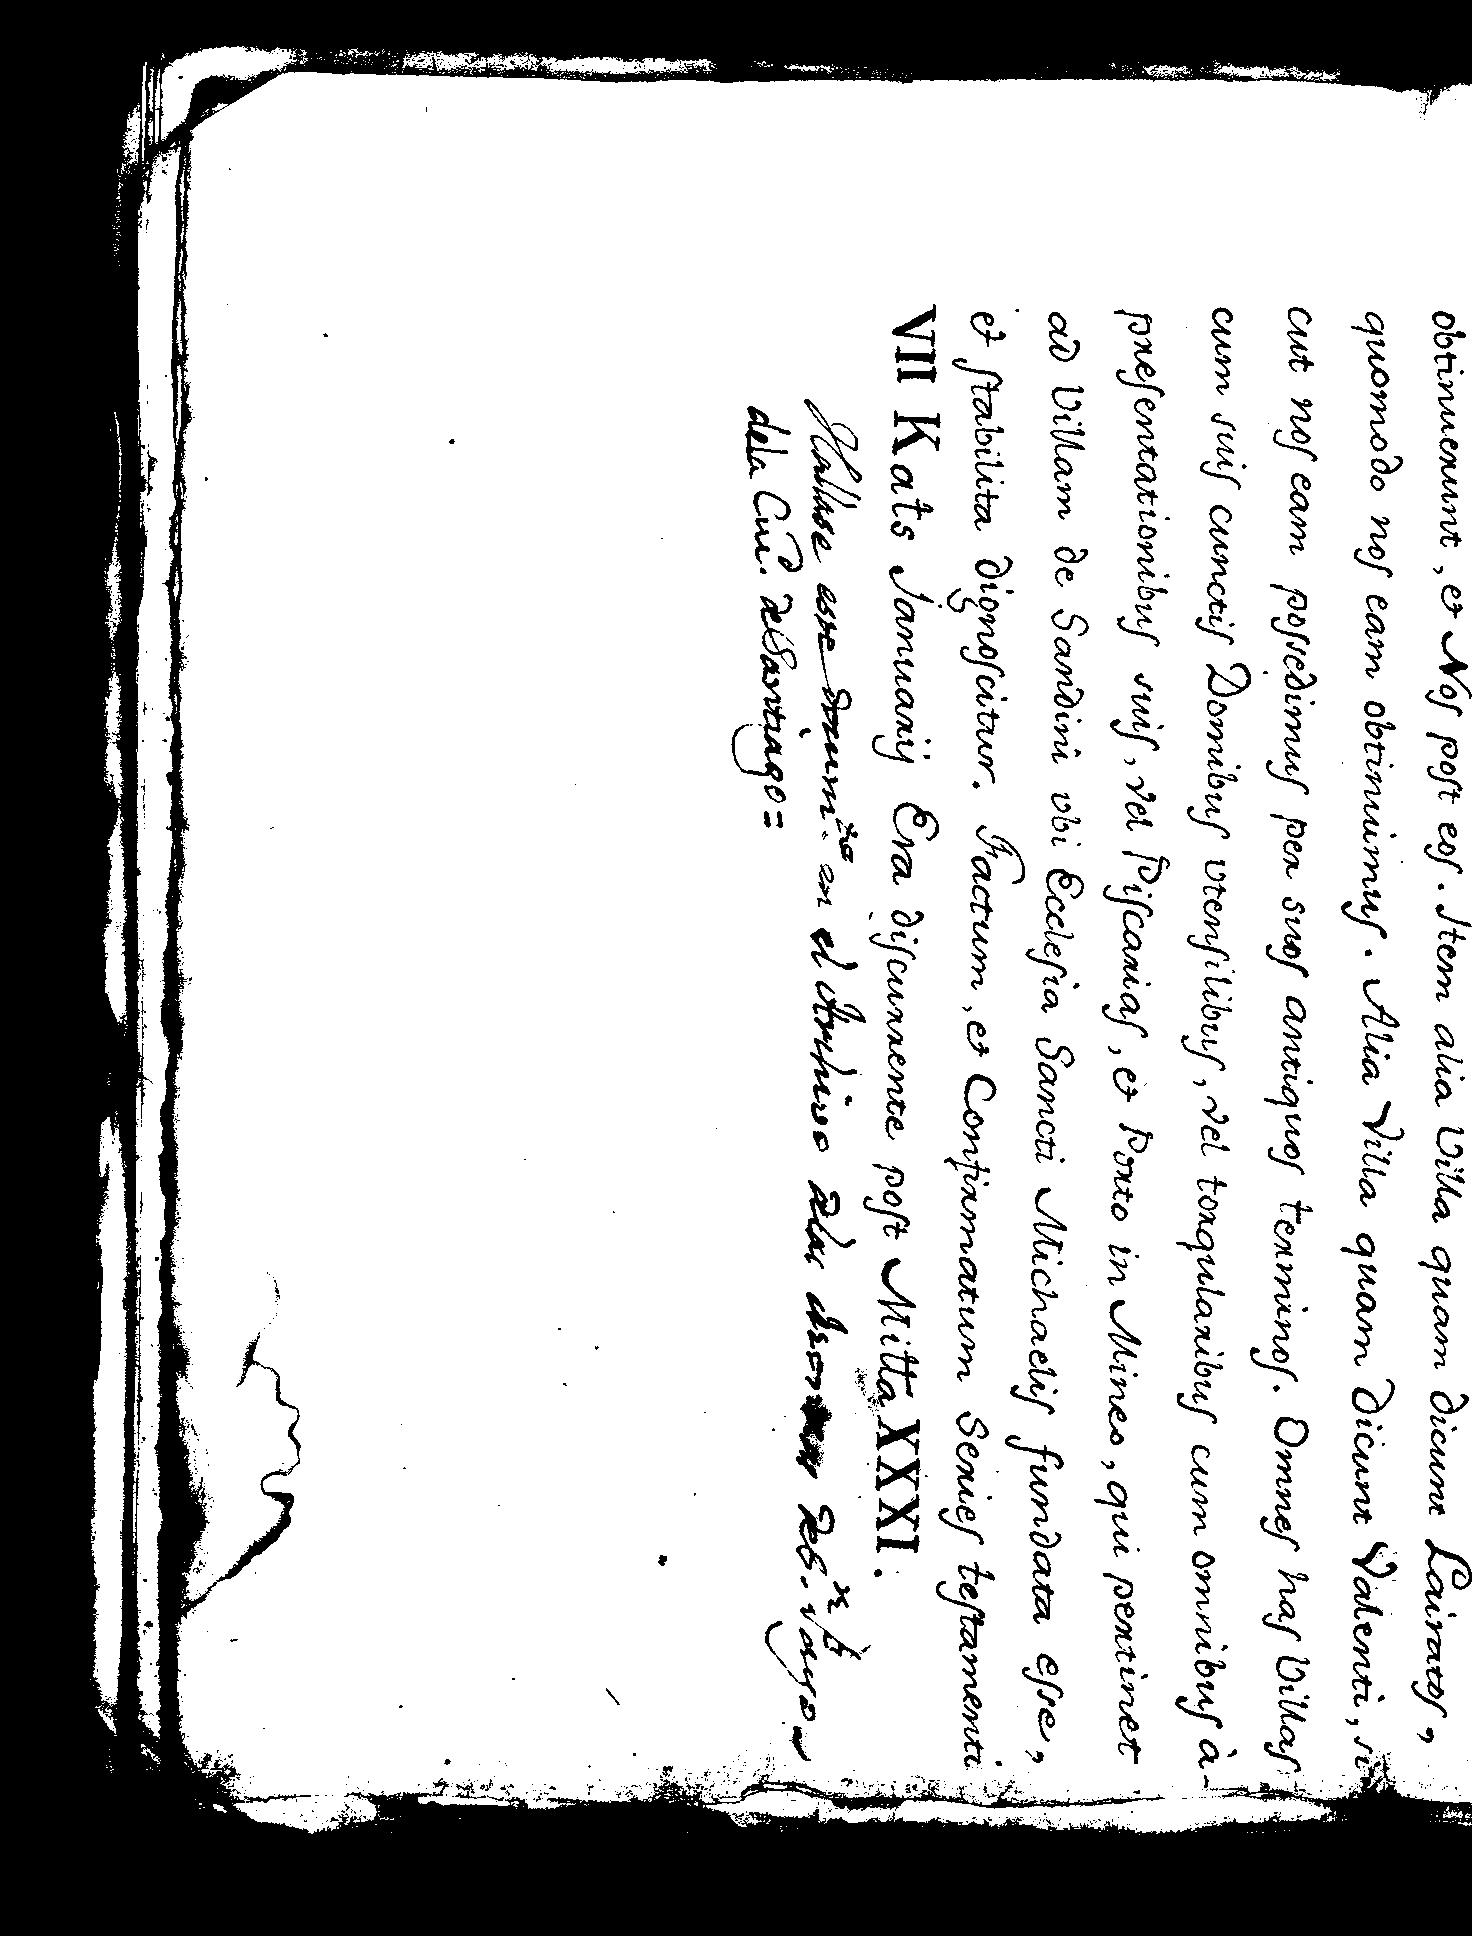 obtinuerunt, et Nos post eos. Item alia Villa quam dicunt Lairatos,
quomodo nos eam obtinuimus. Alia Villa quam dicunt Valenti, si-
cut nos eam possedimus per suos antiquos terminos. Omnes has Villas
cum suis cunctis Domibus utensilibus, vel torqularibus cum omnibus à-
presentationibus suis, vel Piscarias, et Porto in Mineo, qui pertinet
ad Villam de Sandini vbi Ecclesia Sancti Michaelis fundata esse,
et stabilita dignoscitur. Factum, et Confirmatum Series testamenti
VII Kals Januarij Era discurrente post Milla XXXI.
Hallase este en el Archivo
dela Ciud. de Santiago =